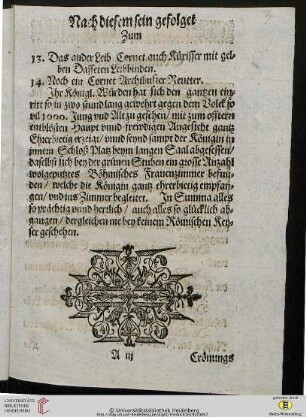 Nach diesem sein gefolget
Zum
13. Das ander Leib Cornet auch Kürisser mit gel-
ben Daffeten Leibbinden.
14. Noch ein Cornet Archibusier Reutter.
Ihr Königl. Würden hat sich den gantzen ein-
ritt so in zwo stund lang gewehrt gegen dem Volck so
vil 1000. Jung vnd Alt zu gesehen/ mit zum offtern
entblösten Haupt vnnd frewdigen Angesicht gantz
Ehrerbietig erzeigt/ vnd seynd sampt der Königin im
innern Schloß Platz beym langen Saal abgesessen/
daselbst sich bey der grünen Stuben ein grosse Anzahl
wolgeputztes Böhmisches Frawenzimmer befun-
den/ welche die Königin gantz ehrerbietig empfan-
gen/ vnd ins Zimmer begleitet. In Summa alles
so prächtig vnnd herrlich/ auch alles so glücklich ab-
gangen/ dergleichen nie bey keinem Römischen Key-
ser geschehen.
A iij
Crönings
UNIVERSITÄTS-
BIBLIOTHEK
HEIDELBERG
© Universitätsbibliothek Heidelberg